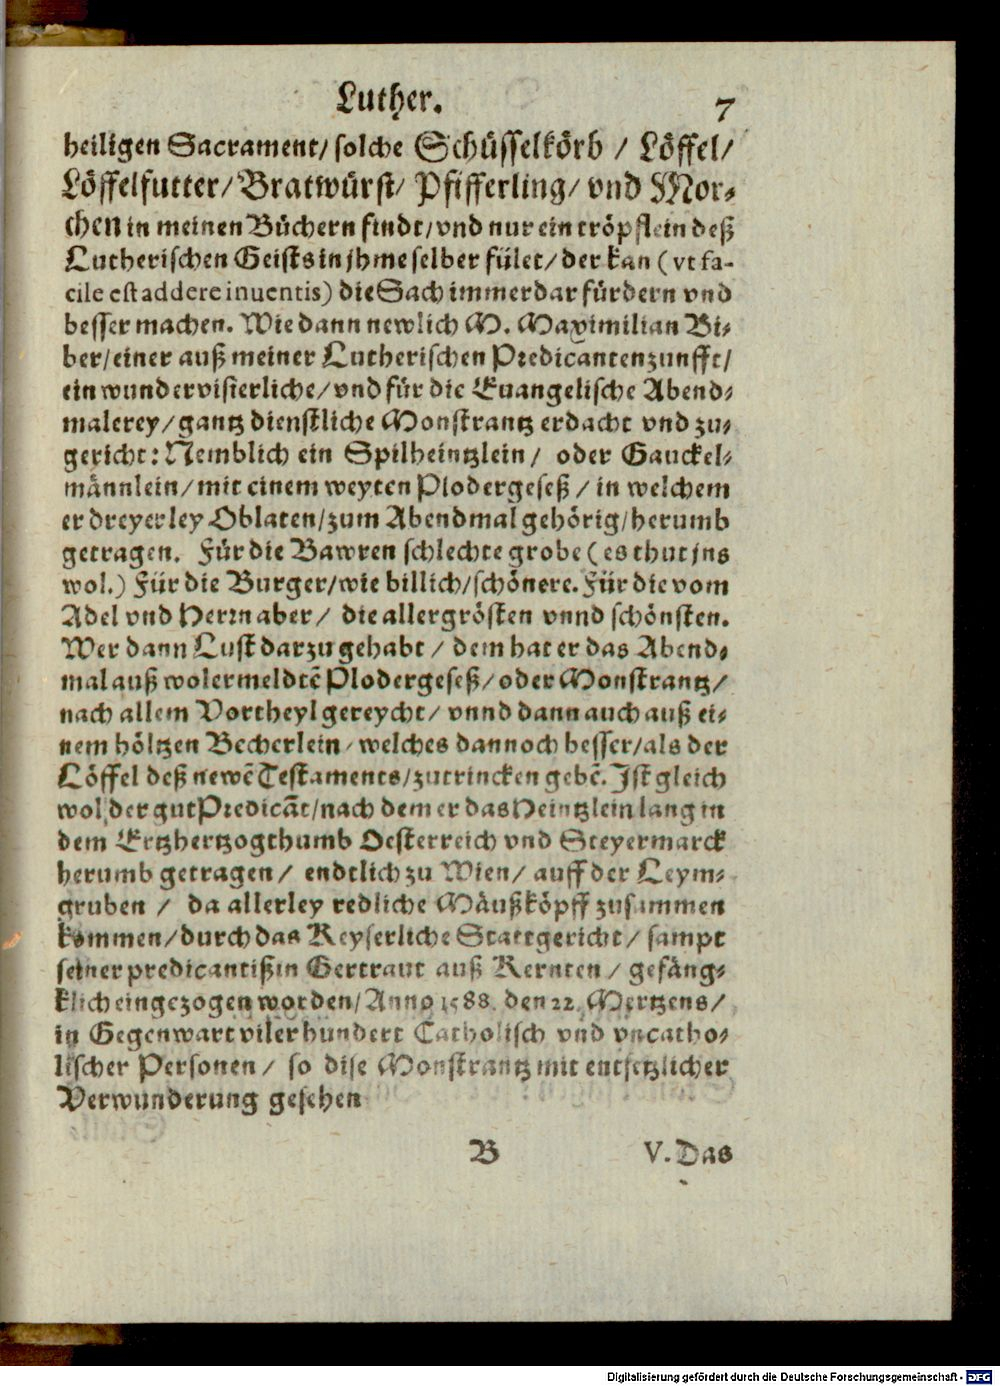 Luther. 7
heiligen Sacrament/ solche Schüsselkörb / Löffel/
Löffelfutter/ Bratwürst/ Pfifferling/ vnd Mor⸗
chen in meinen Büchern findt/ vnd nur ein tröpflein deß
Lutherischen Geists in jhme selber fület/ der kan (vt fa-
cile est addere inuentis) die Sach immerdar fürdern vnd
besser machen. Wie dann newlich M. Maximilian Bi⸗
ber/ einer auß meiner Lutherischen Predicantenzunfft/
ein wundervisierliche/ vnd für die Euangelische Abend⸗
malerey/ gantz dienstliche Monstrantz erdacht vnd zu⸗
gericht: Nemblich ein Spilheintzlein/ oder Gauckel⸗
männlein/ mit einem weyten Plodergeseß / in welchem
er dreyerley Oblaten/ zum Abendmal gehörig/ herumb
getragen. Für die Bawren schlechte grobe (es thut jns
wol.) Für die Burger/ wie billich/ schönere. Für die vom
Adel vnd Herrn aber/ die allergrösten vnnd schönsten.
Wer dann Lust darzu gehabt / dem hat er das Abend⸗
mal auß wolermeldtē Plodergeseß/ oder Monstrantz/
nach allem Vortheyl gereycht/ vnnd dann auch auß ei⸗
nem höltzen Becherlein/ welches dannoch besser/ als der
Löffel deß newē Testaments/ zutrincken gebē. Ist gleich
wol der gut Predicāt/ nach dem er das Heintzlein lang in
dem Ertzhertzogthumb Oesterreich vnd Steyermarck
herumb getragen/ endtlich zu Wien/ auff der Leym⸗
gruben / da allerley redliche Mäußköpff zusammen
kommen/ durch das Keyserliche Stattgericht/ sampt
seiner predicantißin Gertraut auß Kernten / gefäng⸗
klich eingezogen worden/ Anno 1588. den 22. Mertzens/
in Gegenwart viler hundert Catholisch vnd vncatho⸗
lischer Personen/ so dise Monstrantz mit entsetzlicher
Verwunderung gesehen
B V. Das
Digitalisierung gefördert durch die Deutsche Forschungsgemeinschaft - DFG